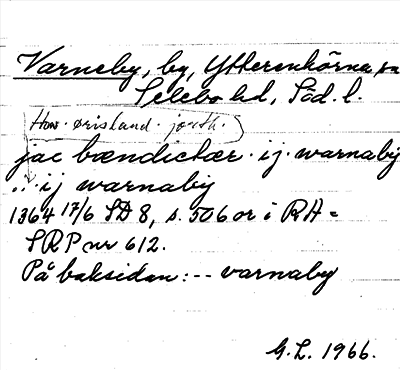 Varneby, by, Ytterenhörna sn
Selebo hd, Söd. l.
How. øristand. jorth.
jac bændictær. ij. warnaby
... ij warnaby
1364 17/6 SD 8, s. 506 or i RA =
SRP nr 612.
På baksidan: -- varnaby
G.L. 1966.